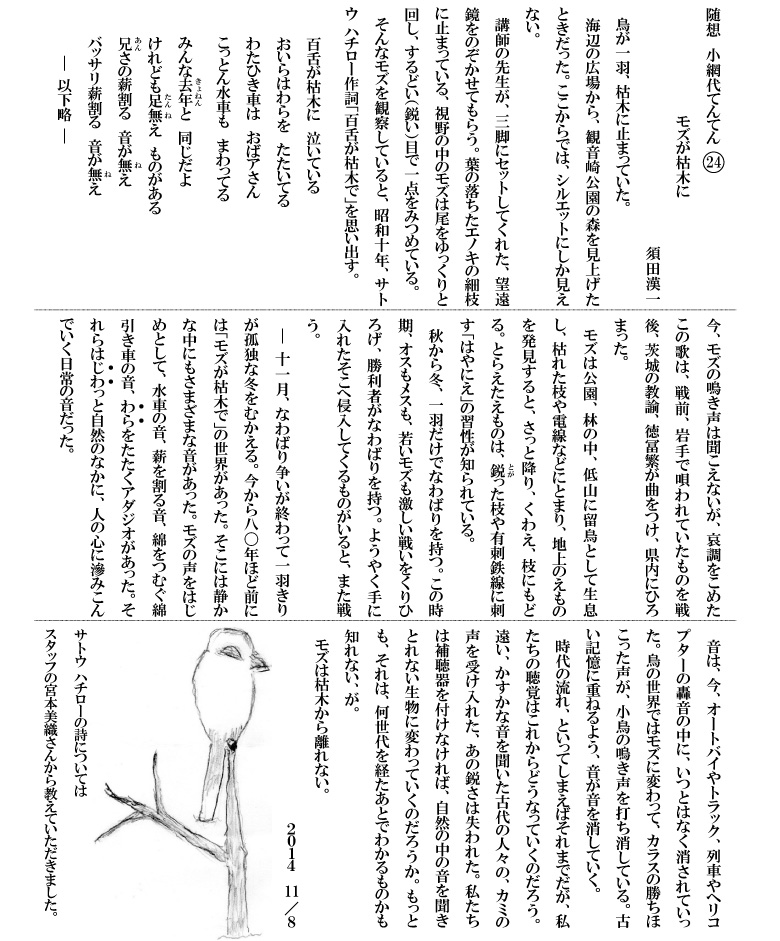 随想　小網代てんてん　㉔
モズが枯木に
須田漢一
鳥が一羽、枯木に止まっていた。
海辺の広場から、観音崎公園の森を見上げた
ときだった。ここからでは、シルエットにしか見え
ない。
講師の先生が、三脚にセットしてくれた、望遠
鏡をのぞかせてもらう。葉の落ちたエノキの細枝
に止まっている、視野の中のモズは尾をゆっくりと
回し、するどい(鋭い)目で一点をみつめている。
そんなモズを観察していると、昭和十年、サト
ウ ハチロー作詞「百舌が枯木で」を思い出す。
百舌が枯木に　泣いている
おいらはわらを　たたいてる
わたひき車は　おばアさん
こっとん水車も　まわってる
みんな去年と　同じだよ
けれども足無え　ものがある
兄さの薪割る　音が無え
バッサリ薪割る　音が無え
― 以下略 ―
今、モズの鳴き声は聞こえないが、哀調をこめた
この歌は、戦前、岩手で唄われていたものを戦
後、茨城の教諭、徳冨繁が曲をつけ、県内にひろ
まった。
モズは公園、林の中、低山に留鳥として生息
し、枯れた枝や電線などにとまり、地上のえもの
を発見すると、さっと降り、くわえ、枝にもど
る。とらえたえものは、鋭った枝や有刺鉄線に刺
す「はやにえ」の習性が知られている。
秋から冬、一羽だけでなわばりを持つ。この時
期、オスもメスも、若いモズも激しい戦いをくりひ
ろげ、勝利者がなわばりを持つ。ようやく手に
入れたそこへ侵入してくるものがいると、また戦
う。
― 十一月、なわばり争いが終わって一羽きり
が孤独な冬をむかえる。今から八〇年ほど前に
は「モズが枯木で」の世界があった。そこには静か
な中にもさまざまな音があった。モズの声をはじ
めとして、水車の音、薪を割る音、綿をつむぐ綿
引き車の音、わらをたたくアダジオがあった。そ
れらはじわっと自然のなかに、人の心に滲みこん
でいく日常の音だった。
音は、今、オートバイやトラック、列車やヘリコ
プターの轟音の中に、いつとはなく消されていっ
た。鳥の世界ではモズに変わって、カラスの勝ちほ
こった声が、小鳥の鳴き声を打ち消している。古
い記憶に重ねるよう、音が音を消していく。
時代の流れ、といってしまえばそれまでだが、私
たちの聴覚はこれからどうなっていくのだろう。
遠い、かすかな音を聞いた古代の人々の、カミの
声を受け入れた、あの鋭さは失われた。私たち
は補聴器を付けなければ、自然の中の音を聞き
とれない生物に変わっていくのだろうか。もっと
も、それは、何世代を経たあとでわかるものかも
知れない、が。
モズは枯木から離れない。
2014　11／8
サトウ ハチローの詩については
スタッフの宮本美織さんから教えていただきました。